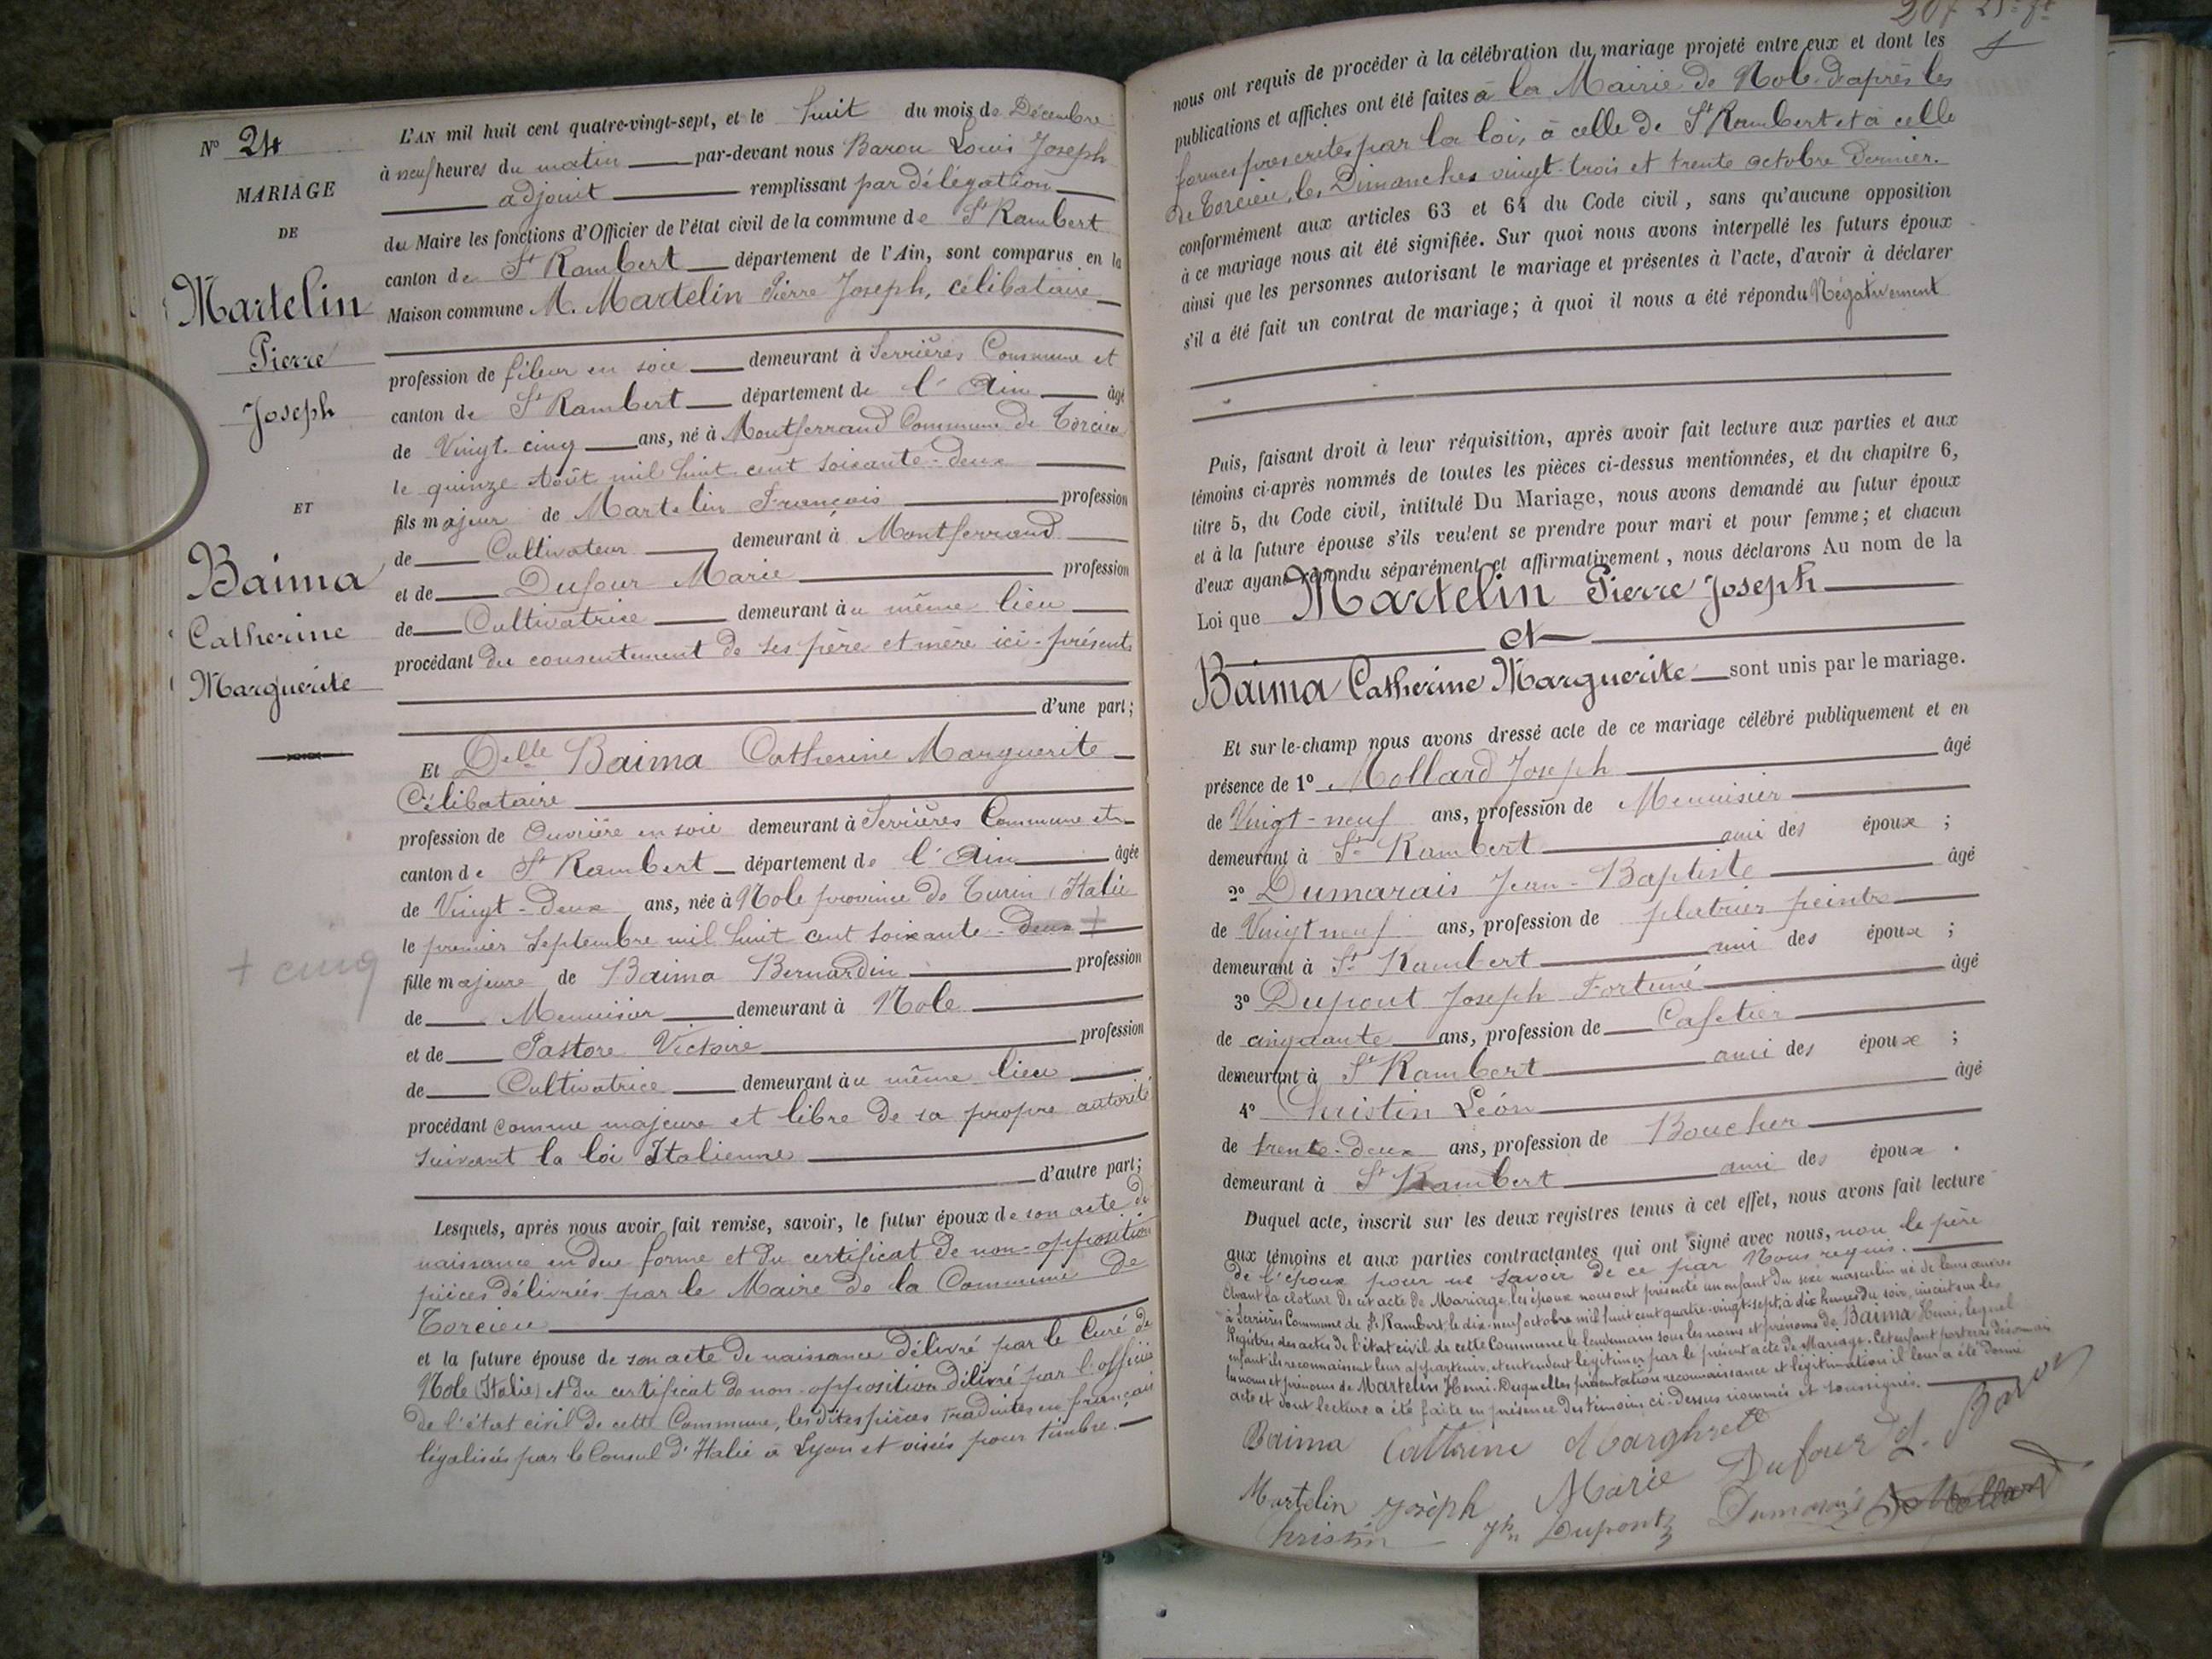 N° 24
MARIAGE
DE
Martelin
Pierre
Joseph
ET
Baima
Catherine
Marguerite
+ cinq
L'AN mil huit cent quatre-vingt-sept, et le huit du mois de Décembre
à neuf heures du matin par-devant nous Baron Louis Joseph
adjoint remplissant par délégation
du Maire les fonctions d'Officier de l'état civil de la commune de St Rambert
canton de St Rambert département de l'Ain, sont comparus en la
Maison commune M. Martelin Pierre Joseph, célibataire
profession de fileur en soie demeurant à Serrières Commune et
canton de St Rambert département de l'Ain âgé
de Vingt-cinq ans, né à Montferrand Commune de Torcieu
le quinze Août mil huit cent soixante-deux
fils majeur de Martelin François profession
de Cultivateur demeurant à Montferrand
et de Dufour Marie profession
de Cultivatrice demeurant au même lieu
procédant du consentement de ses père et mère ici-présents
d'une part;
Et Delle Baima Catherine Marguerite
Célibataire
profession de Ouvrière en soie demeurant à Serrières Commune et
canton de St Rambert département de l'Ain âgée
de Vingt-deux ans, née à Nole province de Turin (Italie
le premier Septembre mil huit cent soixante-deux +
fille majeure de Baima Bernardin profession
de Menuisier demeurant à Nole
et de Pastore Victoire profession
de Cultivatrice demeurant au même lieu
procédant comme majeure et libre de sa propre autorité
suivant la loi Italienne
d'autre part;
Lesquels, après nous avoir fait remise, savoir, le futur époux de son acte de
naissance en due forme et du certificat de non-opposition
pièces délivrées par le Maire de la Commune de
Torcieu
et la future épouse de son acte de naissance délivré par le Curé de
Nole (Italie) et du certificat de non-opposition délivré par l'officier
de l'état civil de cette Commune, les dites pièces traduites en français
légalisées par le Consul d'Italie à Lyon et visées pour timbre.
207
nous ont requis de procéder à la célébration du mariage projeté entre eux et dont les
publications et affiches ont été faites à la Mairie de Nole d'après les
formes prescrites par la loi, à celle de St Rambert et à celle
de Torcieu, les Dimanches vingt-trois et trente octobre dernier.
conformément aux articles 63 et 64 du Code civil, sans qu'aucune opposition
à ce mariage nous ait été signifiée. Sur quoi nous avons interpellé les futurs époux
ainsi que les personnes autorisant le mariage et présentes à l'acte, d'avoir à déclarer
s'il a été fait un contrat de mariage; à quoi il nous a été répondu Négativement
Puis, faisant droit à leur réquisition, après avoir fait lecture aux parties et aux
témoins ci-après nommés de toutes les pièces ci-dessus mentionnées, et du chapitre 6,
titre 5, du Code civil, intitulé Du Mariage, nous avons demandé au futur époux
et à la future épouse s'ils veulent se prendre pour mari et pour femme; et chacun
d'eux ayant répondu séparément et affirmativement, nous déclarons Au nom de la
Loi que Martelin Pierre Joseph
et
Baima Catherine Marguerite sont unis par le mariage.
Et sur-le-champ nous avons dressé acte de ce mariage célébré publiquement et en
présence de 1° Mollard Joseph âgé
de Vingt-neuf ans, profession de Menuisier
demeurant à St Rambert ami des époux ;
2° Dumarais Jean-Baptiste âgé
de Vingt neuf ans, profession de platrier peintre
demeurant à St Rambert ami des époux ;
3° Dupont Joseph Fortuné âgé
de cinquante ans, profession de Cafetier
demeurant à St Rambert ami des époux ;
4° Christin Léon âgé
de trente-deux ans, profession de Boucher
demeurant à St Rambert ami des époux .
Duquel acte, inscrit sur les deux registres tenus à cet effet, nous avons fait lecture
aux témoins et aux parties contractantes qui ont signé avec nous, non le père
de l'époux pour ne savoir de ce par Nous requis.
Avant la cloture de cet acte de Mariage, les époux nous ont présenté un enfant du sexe masculin né de leurs œuvres
à Serrières Commune de St Rambert le dix-neuf octobre mil huit cent quatre-vingt-sept, à dix heures du soir, inscrit sur les
Registres des actes de l'état civil de cette Commune le lendemain sous les noms et prénoms de Baima Henri, lequel
enfant ils reconnaissent leur appartenir, et entendent légitimer par le présent acte de Mariage. Cet enfant portera désormais
les nom et prénoms de Martelin Henri. Desquelles présentation reconnaissance et légitimation il leur a été donné
acte et dont lecture a été faite en présence des témoins ci-dessus nommés et soussignés.
Baima Catterine Marghret L. Baron
Martelin Joseph Marie Dufour
Christin Jh Dupont Dumarais Jh Mollard